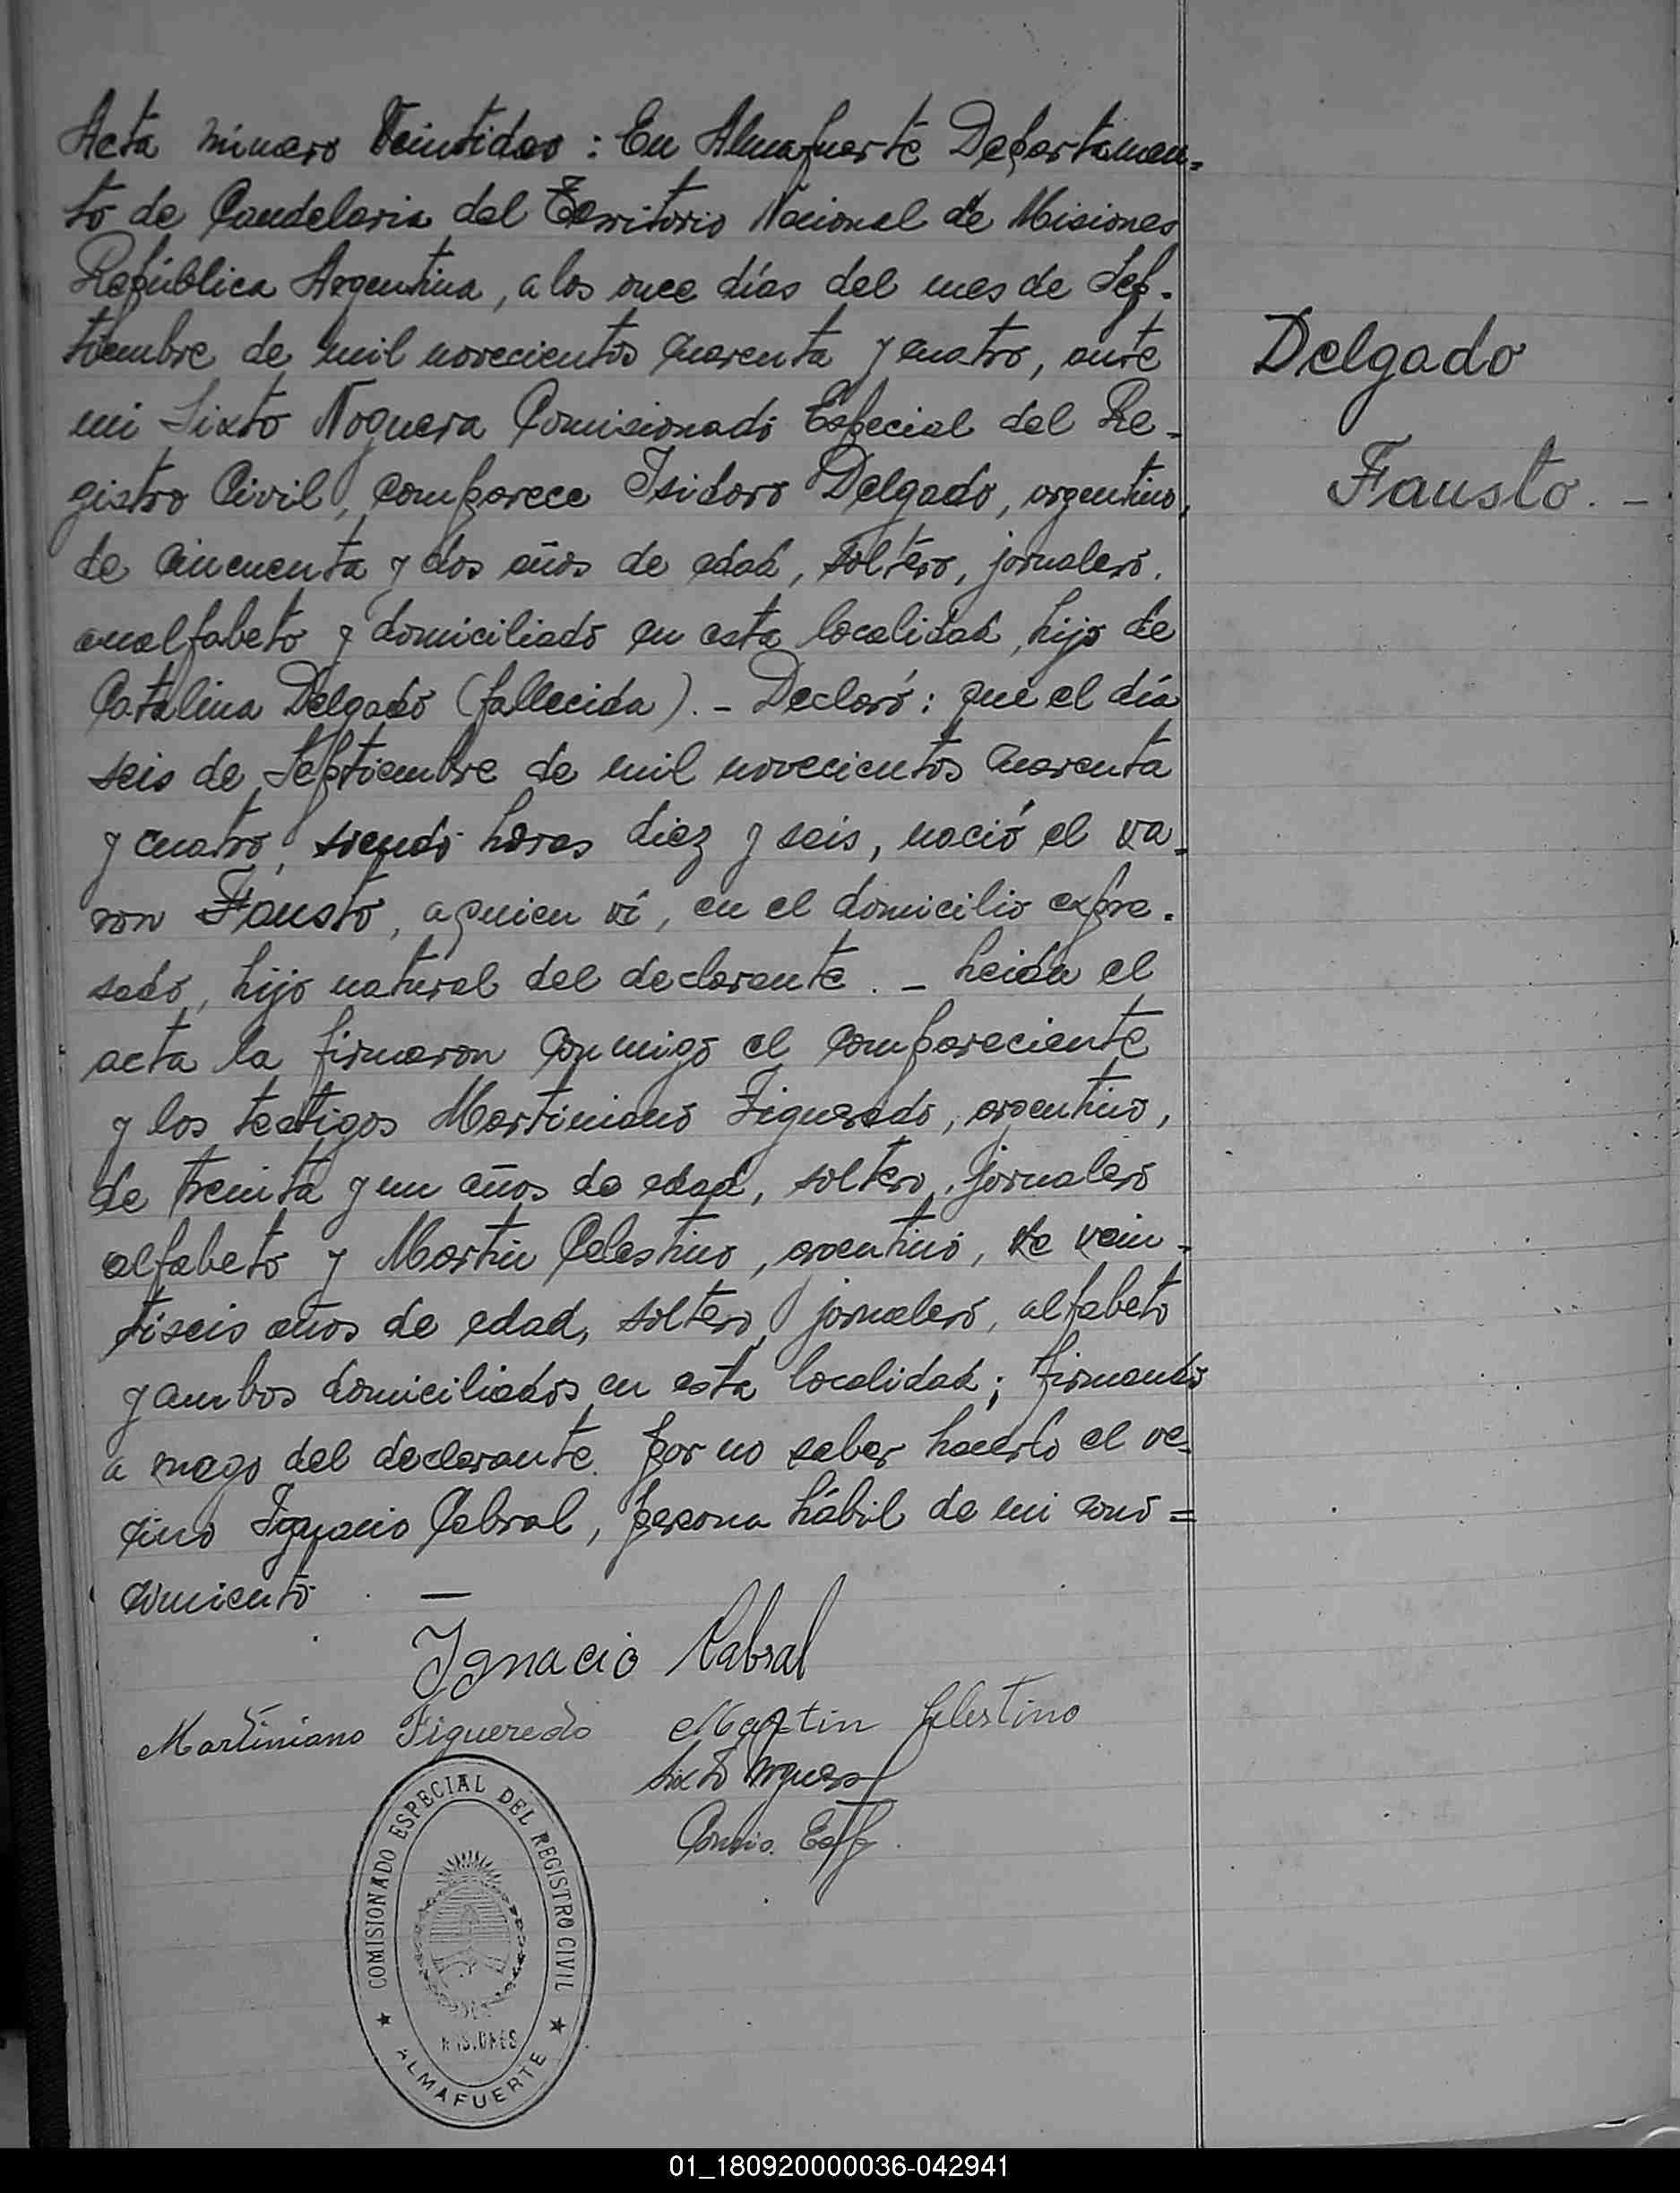 Acta número Veintidos: En Almafuerte Departamen-
to de Candelaria del Territorio Nacional de Misiones
República Argentina, a los once días del mes de Sep-
tiembre de mil novecientos cuarenta y cuatro, ante
mi Sixto Noguera Comisionado Especial del Re-
gistro Civil, comparece Isidoro Delgado, argentino,
de cincuenta y dos años de edad, soltero, jornalero,
analfabeto y domiciliado en esta localidad, hijo de
Catalina Delgado (fallecida). - Declaró: que el día
seis de Septiembre de mil novecientos cuarenta
y cuatro, siendo horas diez y seis, nació el va-
ron Fausto, a quien ví, en el domicilio expre-
sado, hijo natural del declarante. - Leida el
acta la firmaron conmigo el compareciente
y los testigos Martiniano Figueredo, argentino,
de treinta y un años de edad, soltero, jornalero
alfabeto y Martin Celestino, argentino, de vein-
tiseis años de edad, soltero, jornalero, alfabeto
y ambos domiciliados en esta localidad; firmando
a ruego del declarante por no saber hacerlo el ve-
cino Ignacio Cabral, persona hábil de mi cono=
cimiento. —
Delgado
Fausto. -
Ignacio Cabral
Martiniano Figueredo Martin Celestino
Sixto Noguera
Comis. Esp.
COMISIONADO ESPECIAL DEL REGISTRO CIVIL
MISIONES
★ ALMAFUERTE ★
01_180920000036-042941